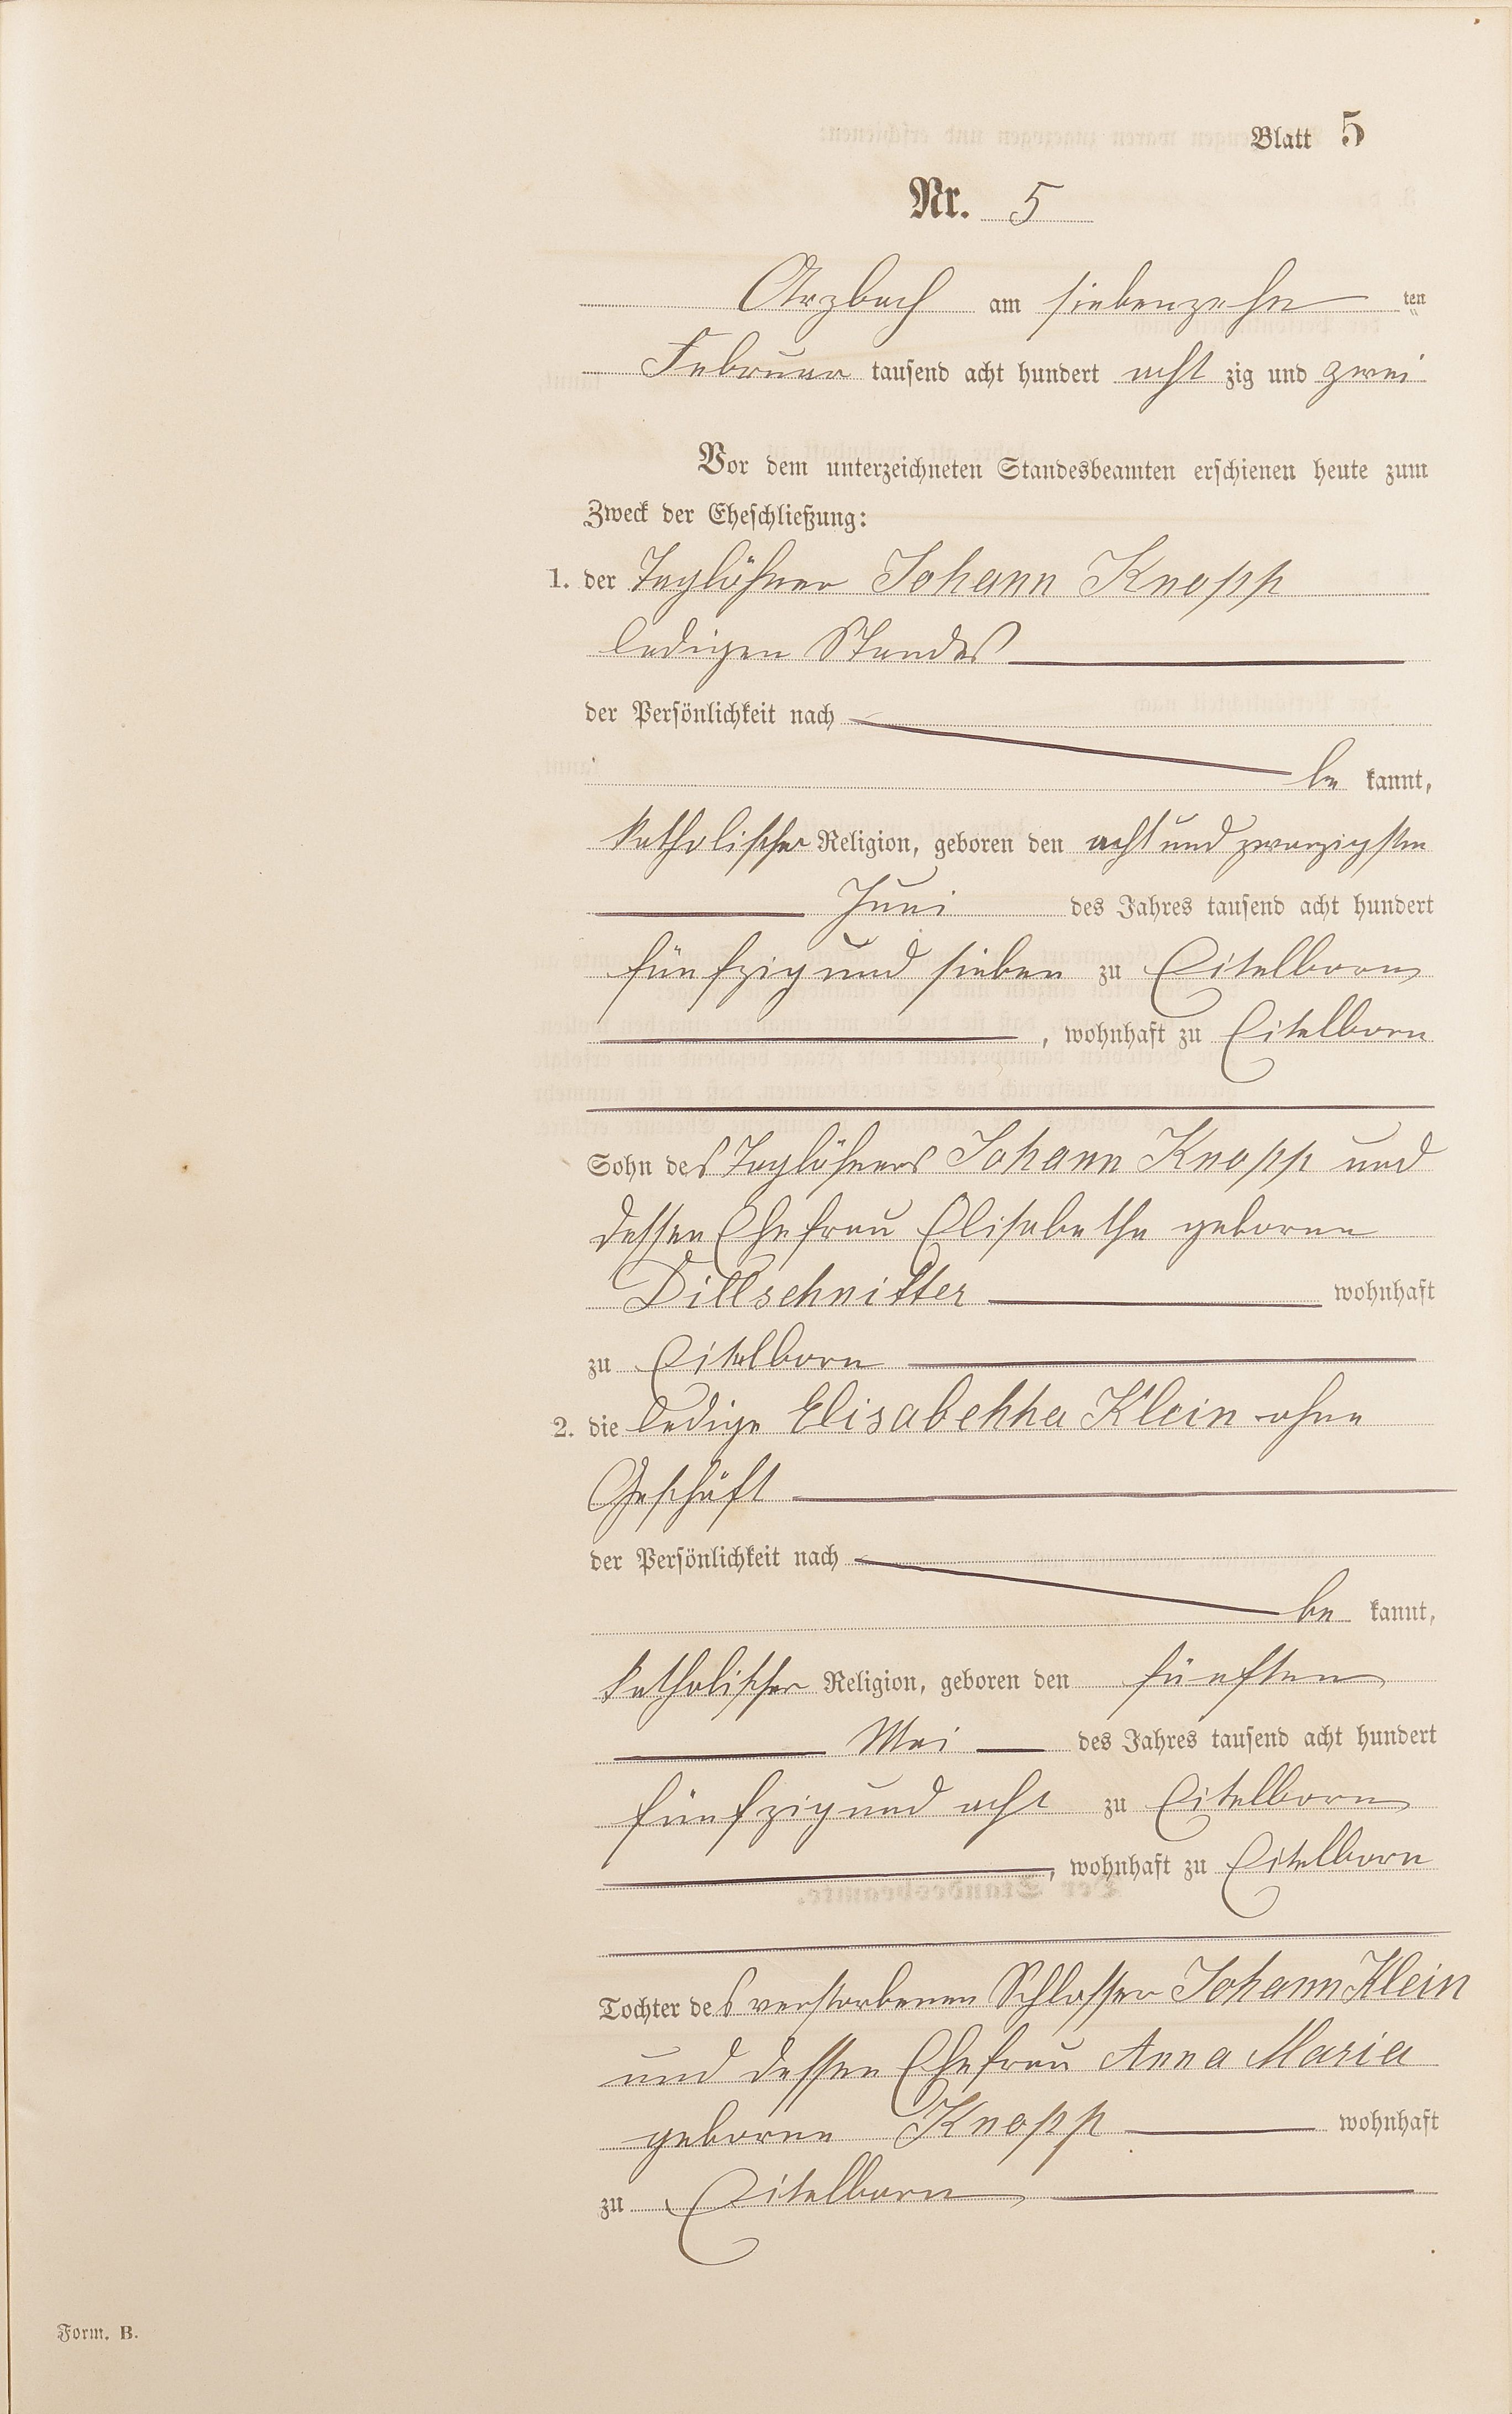 Blatt 5
Nr. 5
Arzbach am siebenzehn ten
Februar tausend acht hundert acht zig und zwei
Vor dem unterzeichneten Standesbeamten erschienen heute zum
Zweck der Eheschließung:
1. der Taglöhner Johann Knopp
ledigen Standes
der Persönlichkeit nach
be kannt,
katholischer Religion, geboren den acht und zwanzigsten
Juni des Jahres tausend acht hundert
fünfzig und sieben zu Eitelborn
, wohnhaft zu Eitelborn
Sohn des Taglöhners Johann Knopp und
dessen Ehefrau Elisabetha geborene
Dillschnitter wohnhaft
zu Eitelborn
2. die ledige Elisabehha Klein ohne
Geschäft
der Persönlichkeit nach
be kannt,
katholischer Religion, geboren den fünften
Mai des Jahres tausend acht hundert
fünfzig und acht zu Eitelborn
, wohnhaft zu Eitelborn
Tochter des verstorbenen Schlosser Johann Klein
und dessen Ehefrau Anna Maria
geborene Knopp wohnhaft
zu Eitelborn
Form. B.